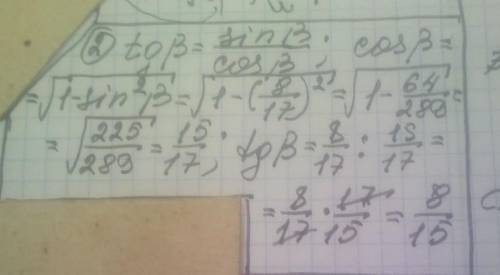 ② tgβ = sinβ/cosβ; cosβ =
= √(1-sin²β) = √(1-(8/17)²) = √(1-64/289) =
= √(225/289) = 15/17; tgβ = 8/17 : 15/17 =
= 8/17 · 17/15 = 8/15